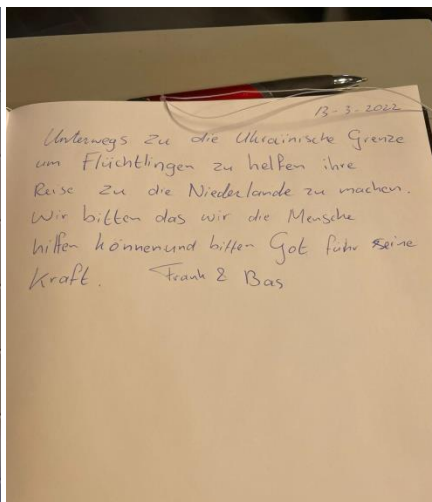 13-3-2022
Unterwegs zu die Ukrainische Grenze
um Flüchtlingen zu helfen ihre
Reise zu die Niederlande zu machen.
Wir bitten das wir die Mensche
hilfen können und bitten Got führ seine
Kraft. Frank & Bas